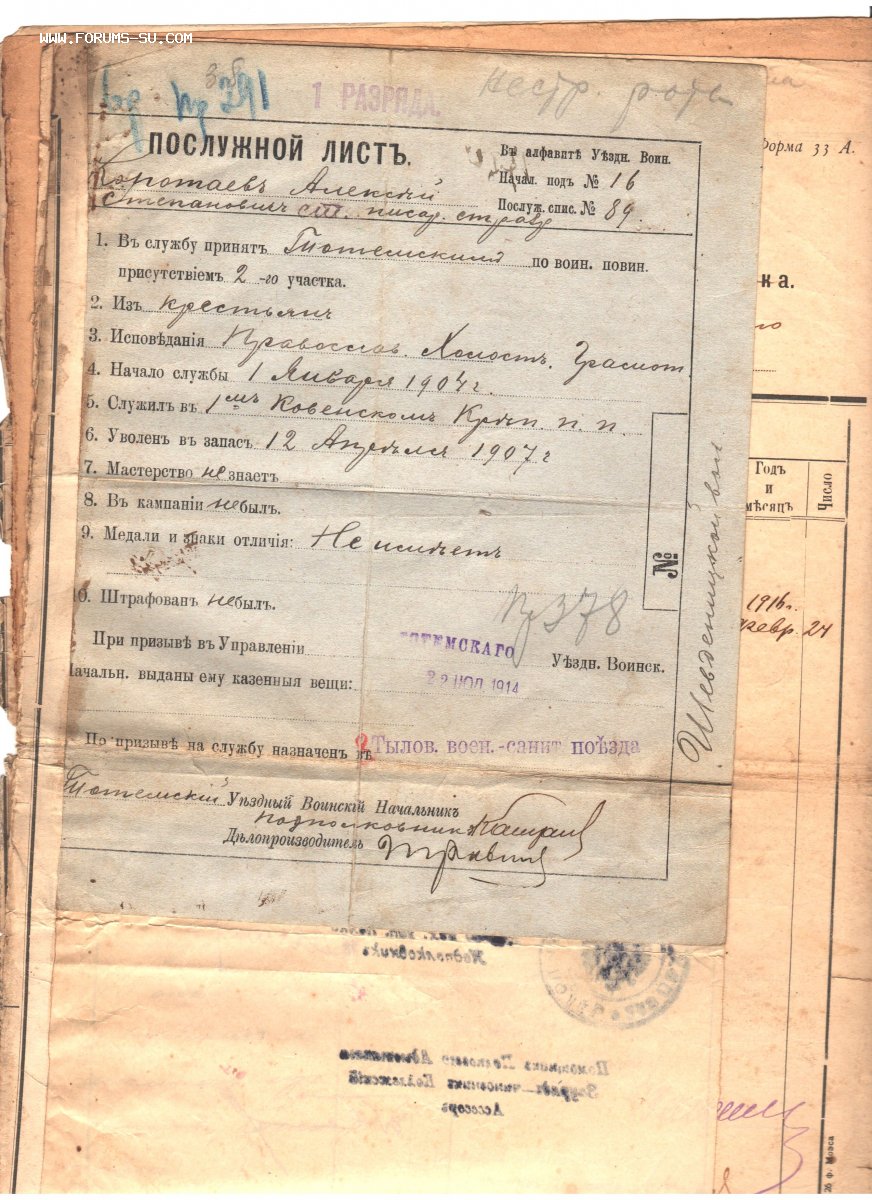 WWW.FORUMS-SU.COM
38
Пр 291
1 РАЗРЯДА.
нестр. рота
Форма 33 А.
ПОСЛУЖНОЙ ЛИСТЪ.
Въ алфавитѣ Уѣздн. Воин.
Начал. подъ № 16
Послуж. спис. № 89.
Коротаевъ Алексѣй
Степановичъ ст. писар.
1. Въ службу принятъ Тотемскимъ по воин. повин.
присутствіемъ 2-го участка.
2. Изъ крестьянъ
3. Исповѣданія Православ. Холостъ. Грамот.
4. Начало службы 1 Января 1904 г.
5. Служилъ въ 1мъ Ковенскомъ Крѣп. п. п.
6. Уволенъ въ запасъ 12 Апрѣля 1907 г
7. Мастерство не знаетъ
8. Въ кампаніи не былъ.
9. Медали и знаки отличія: Не имѣетъ
10. Штрафованъ не былъ.
Пр 378
При призывѣ въ Управленіи ТОТЕМСКАГО Уѣздн. Воинск.
Начальн. выданы ему казенныя вещи: 22 ІЮЛ 1914
По призывѣ на службу назначенъ въ Тылов. воен.-санит поѣзда
Тотемскій Уѣздный Воинскій Начальникъ
подполковникъ
Дѣлопроизводитель
№
Шевденицкой вол
ка.
го
Годъ
и
мѣсяцъ
Число
1916 г.
февр. 24
Подполковникъ
Помощникъ Полкового Адъютанта
Заурядъ-чиновникъ Коллежскій
Ассесоръ
ф. Мозса